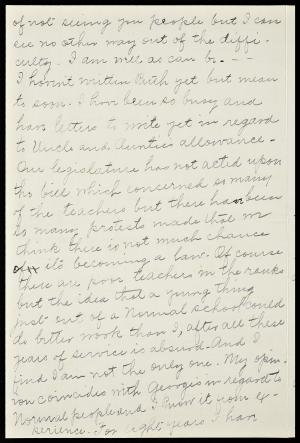 of not seeing you people but I can
see no other way out of the diffi-
culty. I am well as can be. - -
I haven't written Ruth yet but mean
to soon. I have been so busy and
have letters to write yet in regard
to Uncle and Auntie's allowance -
Our legislature has not acted upon
the bill which concerned so many
of the teachers but there has been
so many protests made that we
think there is not much chance
of its becoming a law. Of course
there are poor teachers in the ranks
but the idea that a young thing
just out of a Normal school could
do better work than I, after all these
years of service is absurd. And I
find I am not the only one. My opin-
ion coincides with George's in regard to
Normal people and I know it from ex-
perience. For eight years I have